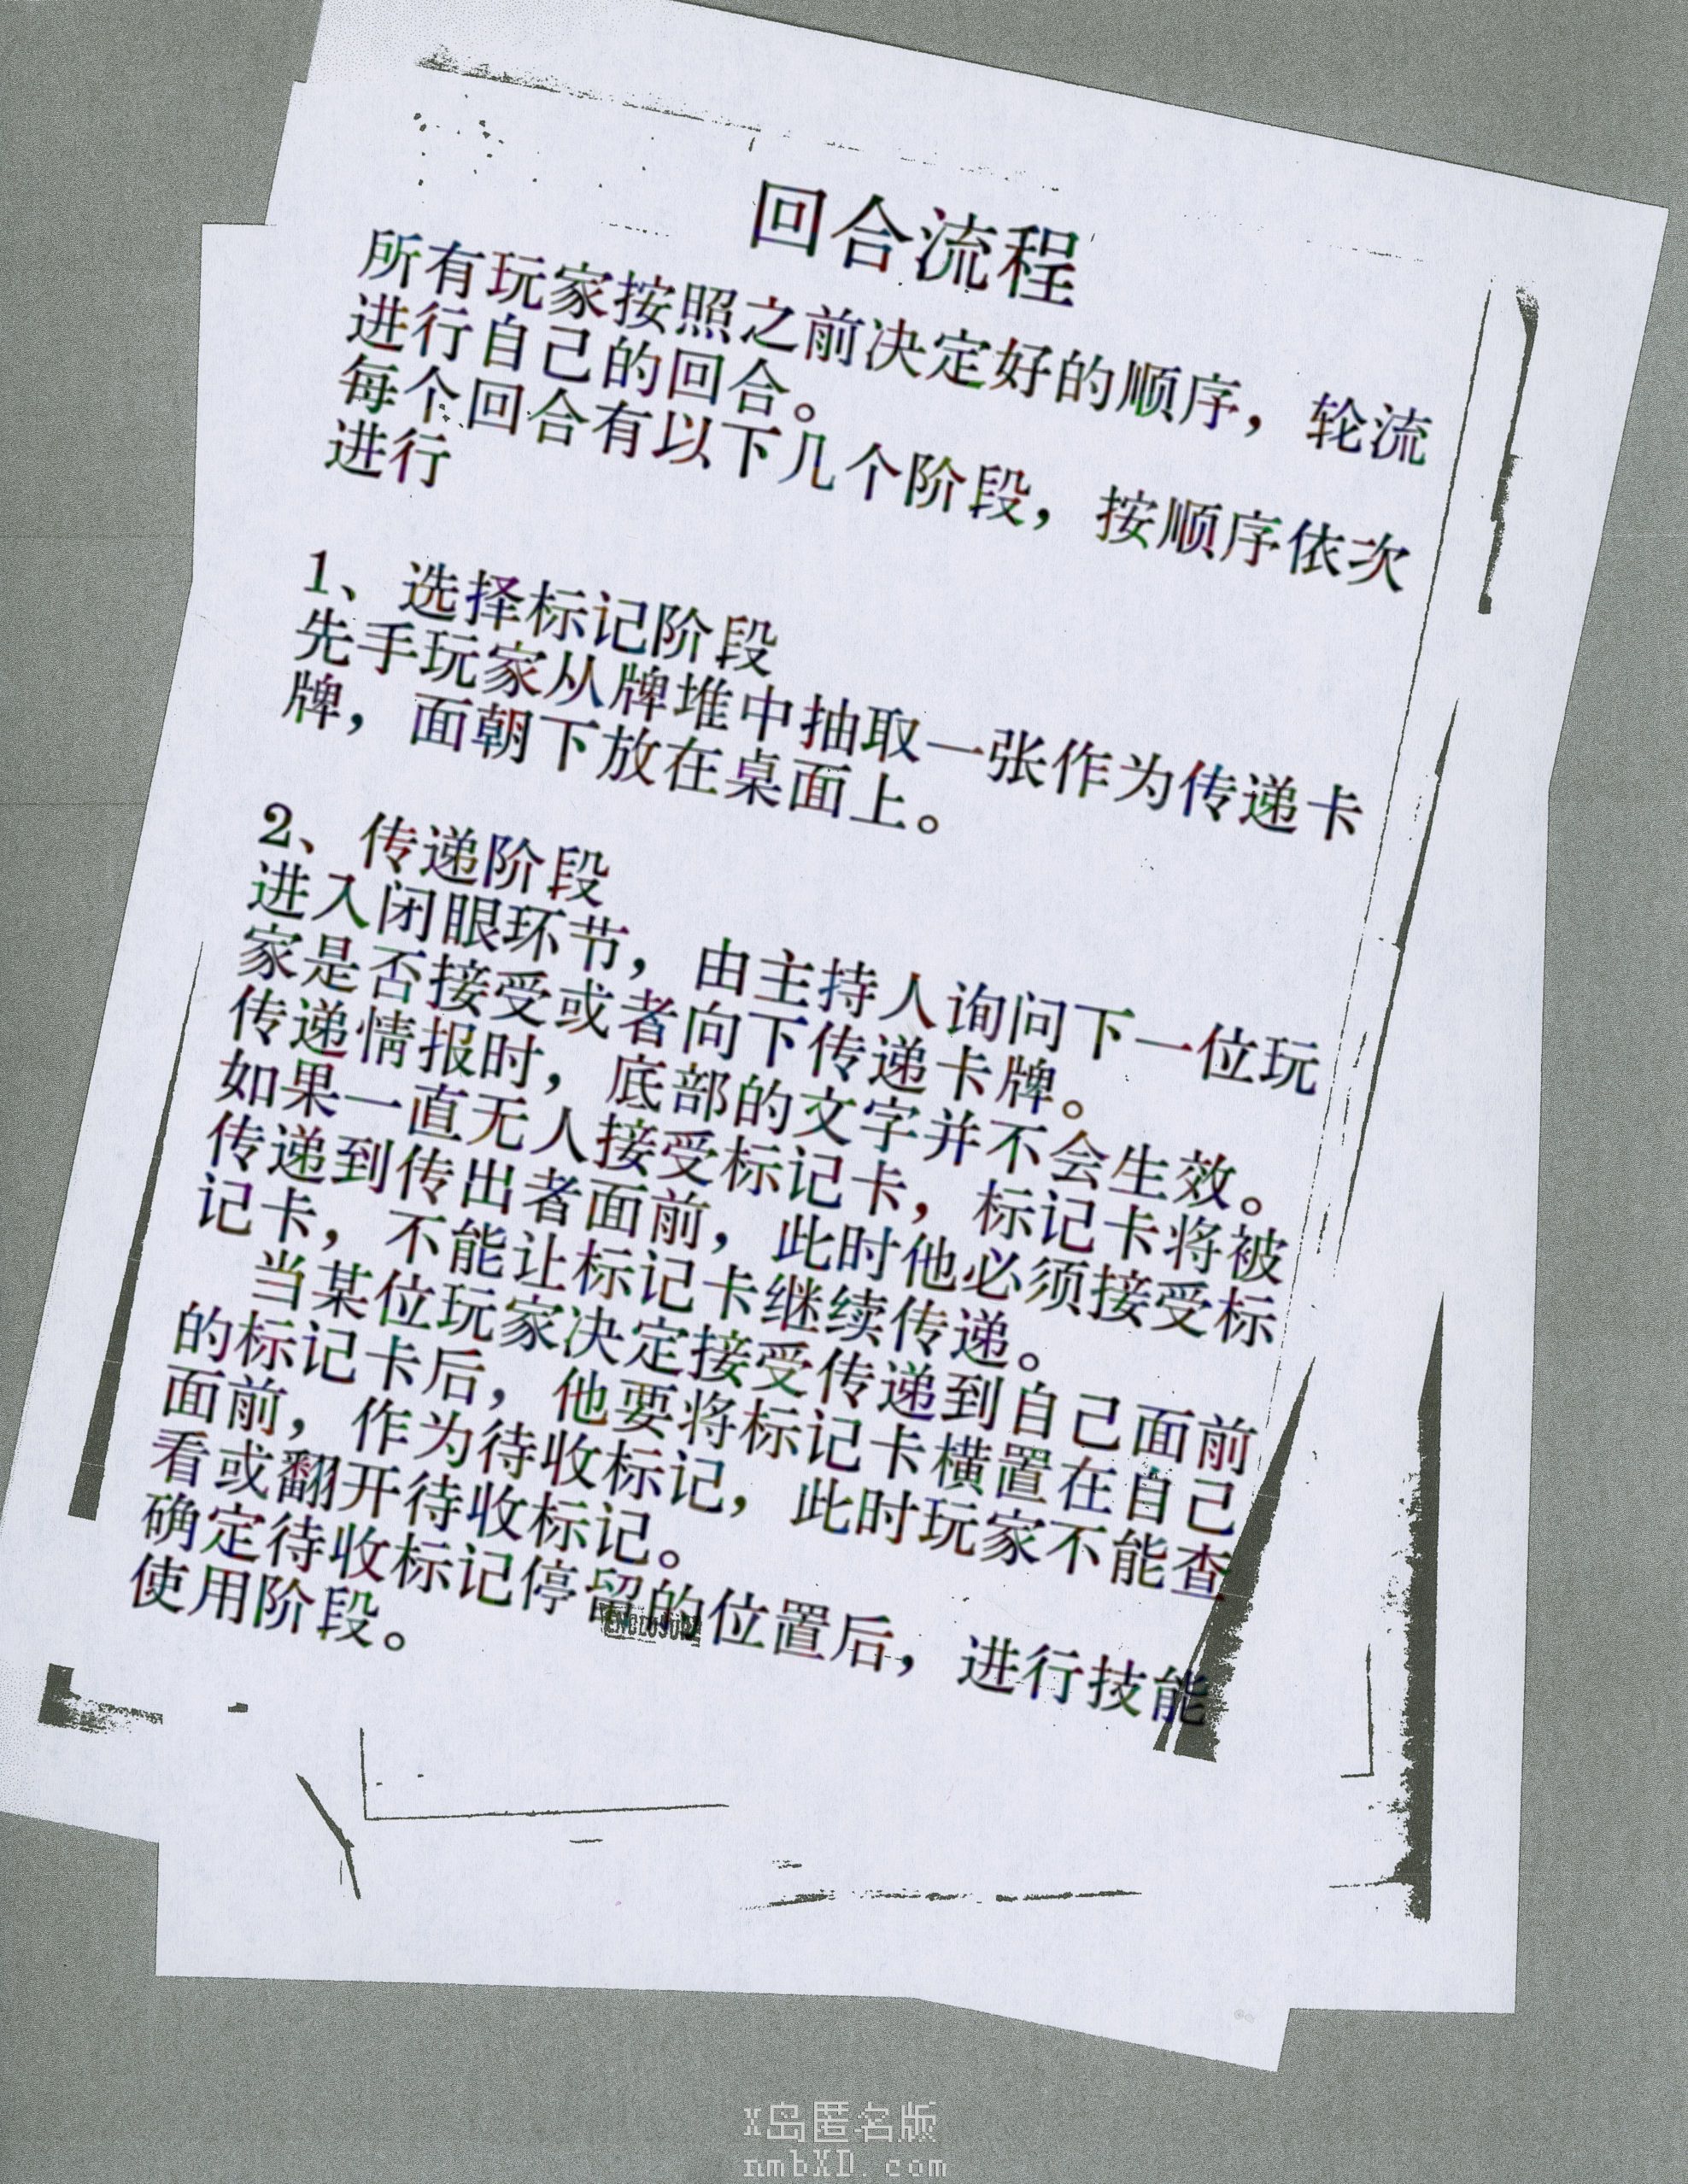 回合流程
所有玩家按照之前决定好的顺序，轮流
进行自己的回合。
每个回合有以下几个阶段，按顺序依次
进行
1、选择标记阶段
先手玩家从牌堆中抽取一张作为传递卡
牌，面朝下放在桌面上。
2、传递阶段
进入闭眼环节，由主持人询问下一位玩
家是否接受或者向下传递卡牌。
传递情报时，底部的文字并不会生效。
如果一直无人接受标记卡，标记卡将被
传递到传出者面前，此时他必须接受标
记卡，不能让标记卡继续传递。
当某位玩家决定接受传递到自己面前
的标记卡后，他要将标记卡横置在自己
面前，作为待收标记，此时玩家不能查
看或翻开待收标记。
确定待收标记停留的位置后，进行技能
使用阶段。
ENCLOSURE
X岛匿名版
nmbXD.com